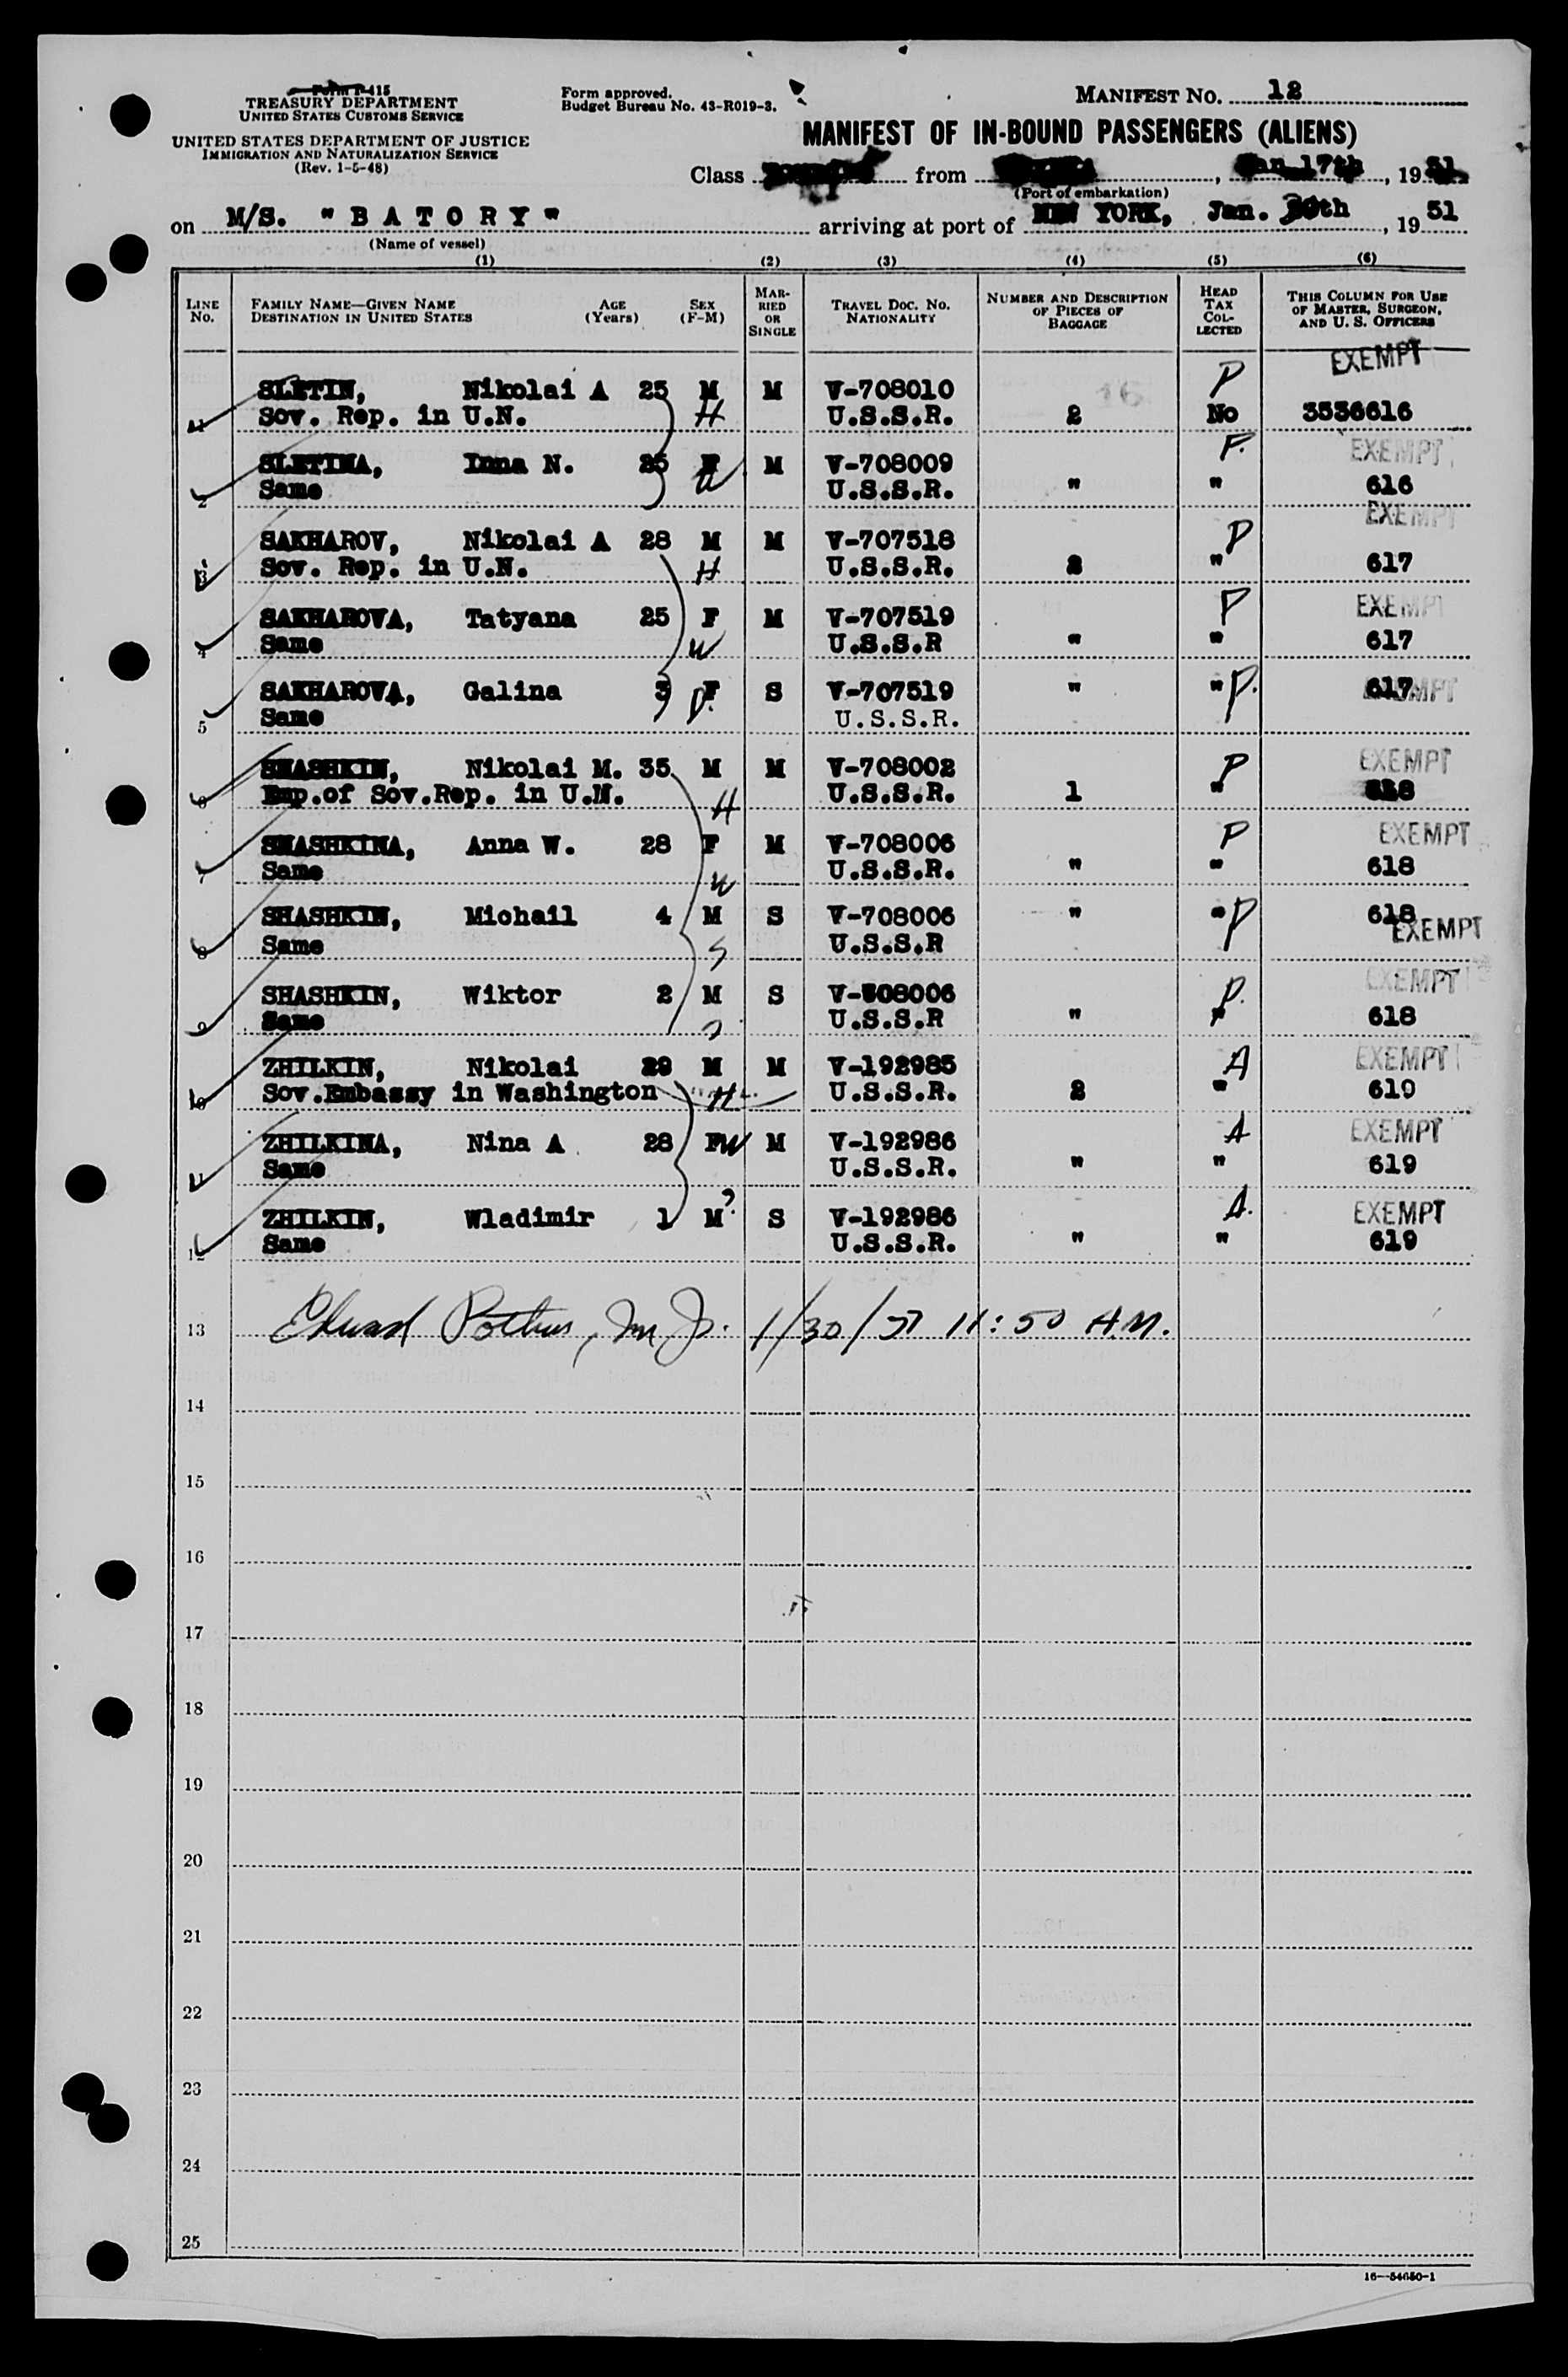 Form I-415
TREASURY DEPARTMENT
UNITED STATES CUSTOMS SERVICE
UNITED STATES DEPARTMENT OF JUSTICE
IMMIGRATION AND NATURALIZATION SERVICE
(Rev. 1-5-48)
Form approved.
Budget Bureau No. 43-R019-3.
MANIFEST NO. 12
MANIFEST OF IN-BOUND PASSENGERS (ALIENS)
Class from , Jan 17th, 1951
(Port of embarkation)
on M/S. "BATORY" arriving at port of NEW YORK, Jan. 30th, 19 51
(Name of vessel)
(1) (2) (3) (4) (5) (6)
LINE No. FAMILY NAME—GIVEN NAME DESTINATION IN UNITED STATES AGE (Years) SEX (F-M) MARRIED OR SINGLE TRAVEL DOC. NO. NATIONALITY NUMBER AND DESCRIPTION OF PIECES OF BAGGAGE HEAD TAX COLLECTED THIS COLUMN FOR USE OF MASTER, SURGEON, AND U. S. OFFICERS
EXEMPT
1 SLETIN, Nikolai A 25 M M V-708010 P
Sov. Rep. in U.N. H U.S.S.R. 2 No 3536616
2 SLETINA, Inna N. 25 F M V-708009 P. EXEMPT
Same W U.S.S.R. " " 616
EXEMPT
3 SAKHAROV, Nikolai A 28 M M V-707518 P
Sov. Rep. in U.N. H U.S.S.R. 2 " 617
4 SAKHAROVA, Tatyana 25 F M V-707519 P EXEMPT
Same W U.S.S.R " " 617
5 SAKHAROVA, Galina 3 F S V-707519 " " P. 617 EXEMPT
Same D. U.S.S.R.
6 SHASHKIN, Nikolai M. 35 M M V-708002 P EXEMPT
Emp.of Sov.Rep. in U.N. H U.S.S.R. 1 " 618
7 SHASHKINA, Anna W. 28 F M V-708006 P EXEMPT
Same W U.S.S.R. " " 618
8 SHASHKIN, Michail 4 M S V-708006 " " P 618
Same S U.S.S.R EXEMPT
9 SHASHKIN, Wiktor 2 M S V-508006 P. EXEMPT
Same U.S.S.R " " 618
10 ZHILKIN, Nikolai 29 M M V-192985 A EXEMPT
Sov.Embassy in Washington H U.S.S.R. 2 " 619
11 ZHILKINA, Nina A 28 F W M V-192986 A EXEMPT
Same U.S.S.R. " " 619
12 ZHILKIN, Wladimir 1 M S V-192986 A. EXEMPT
Same U.S.S.R. " " 619
13 1/30/51 11:50 A.M.
14
15
16
17
18
19
20
21
22
23
24
25
16—54650-1